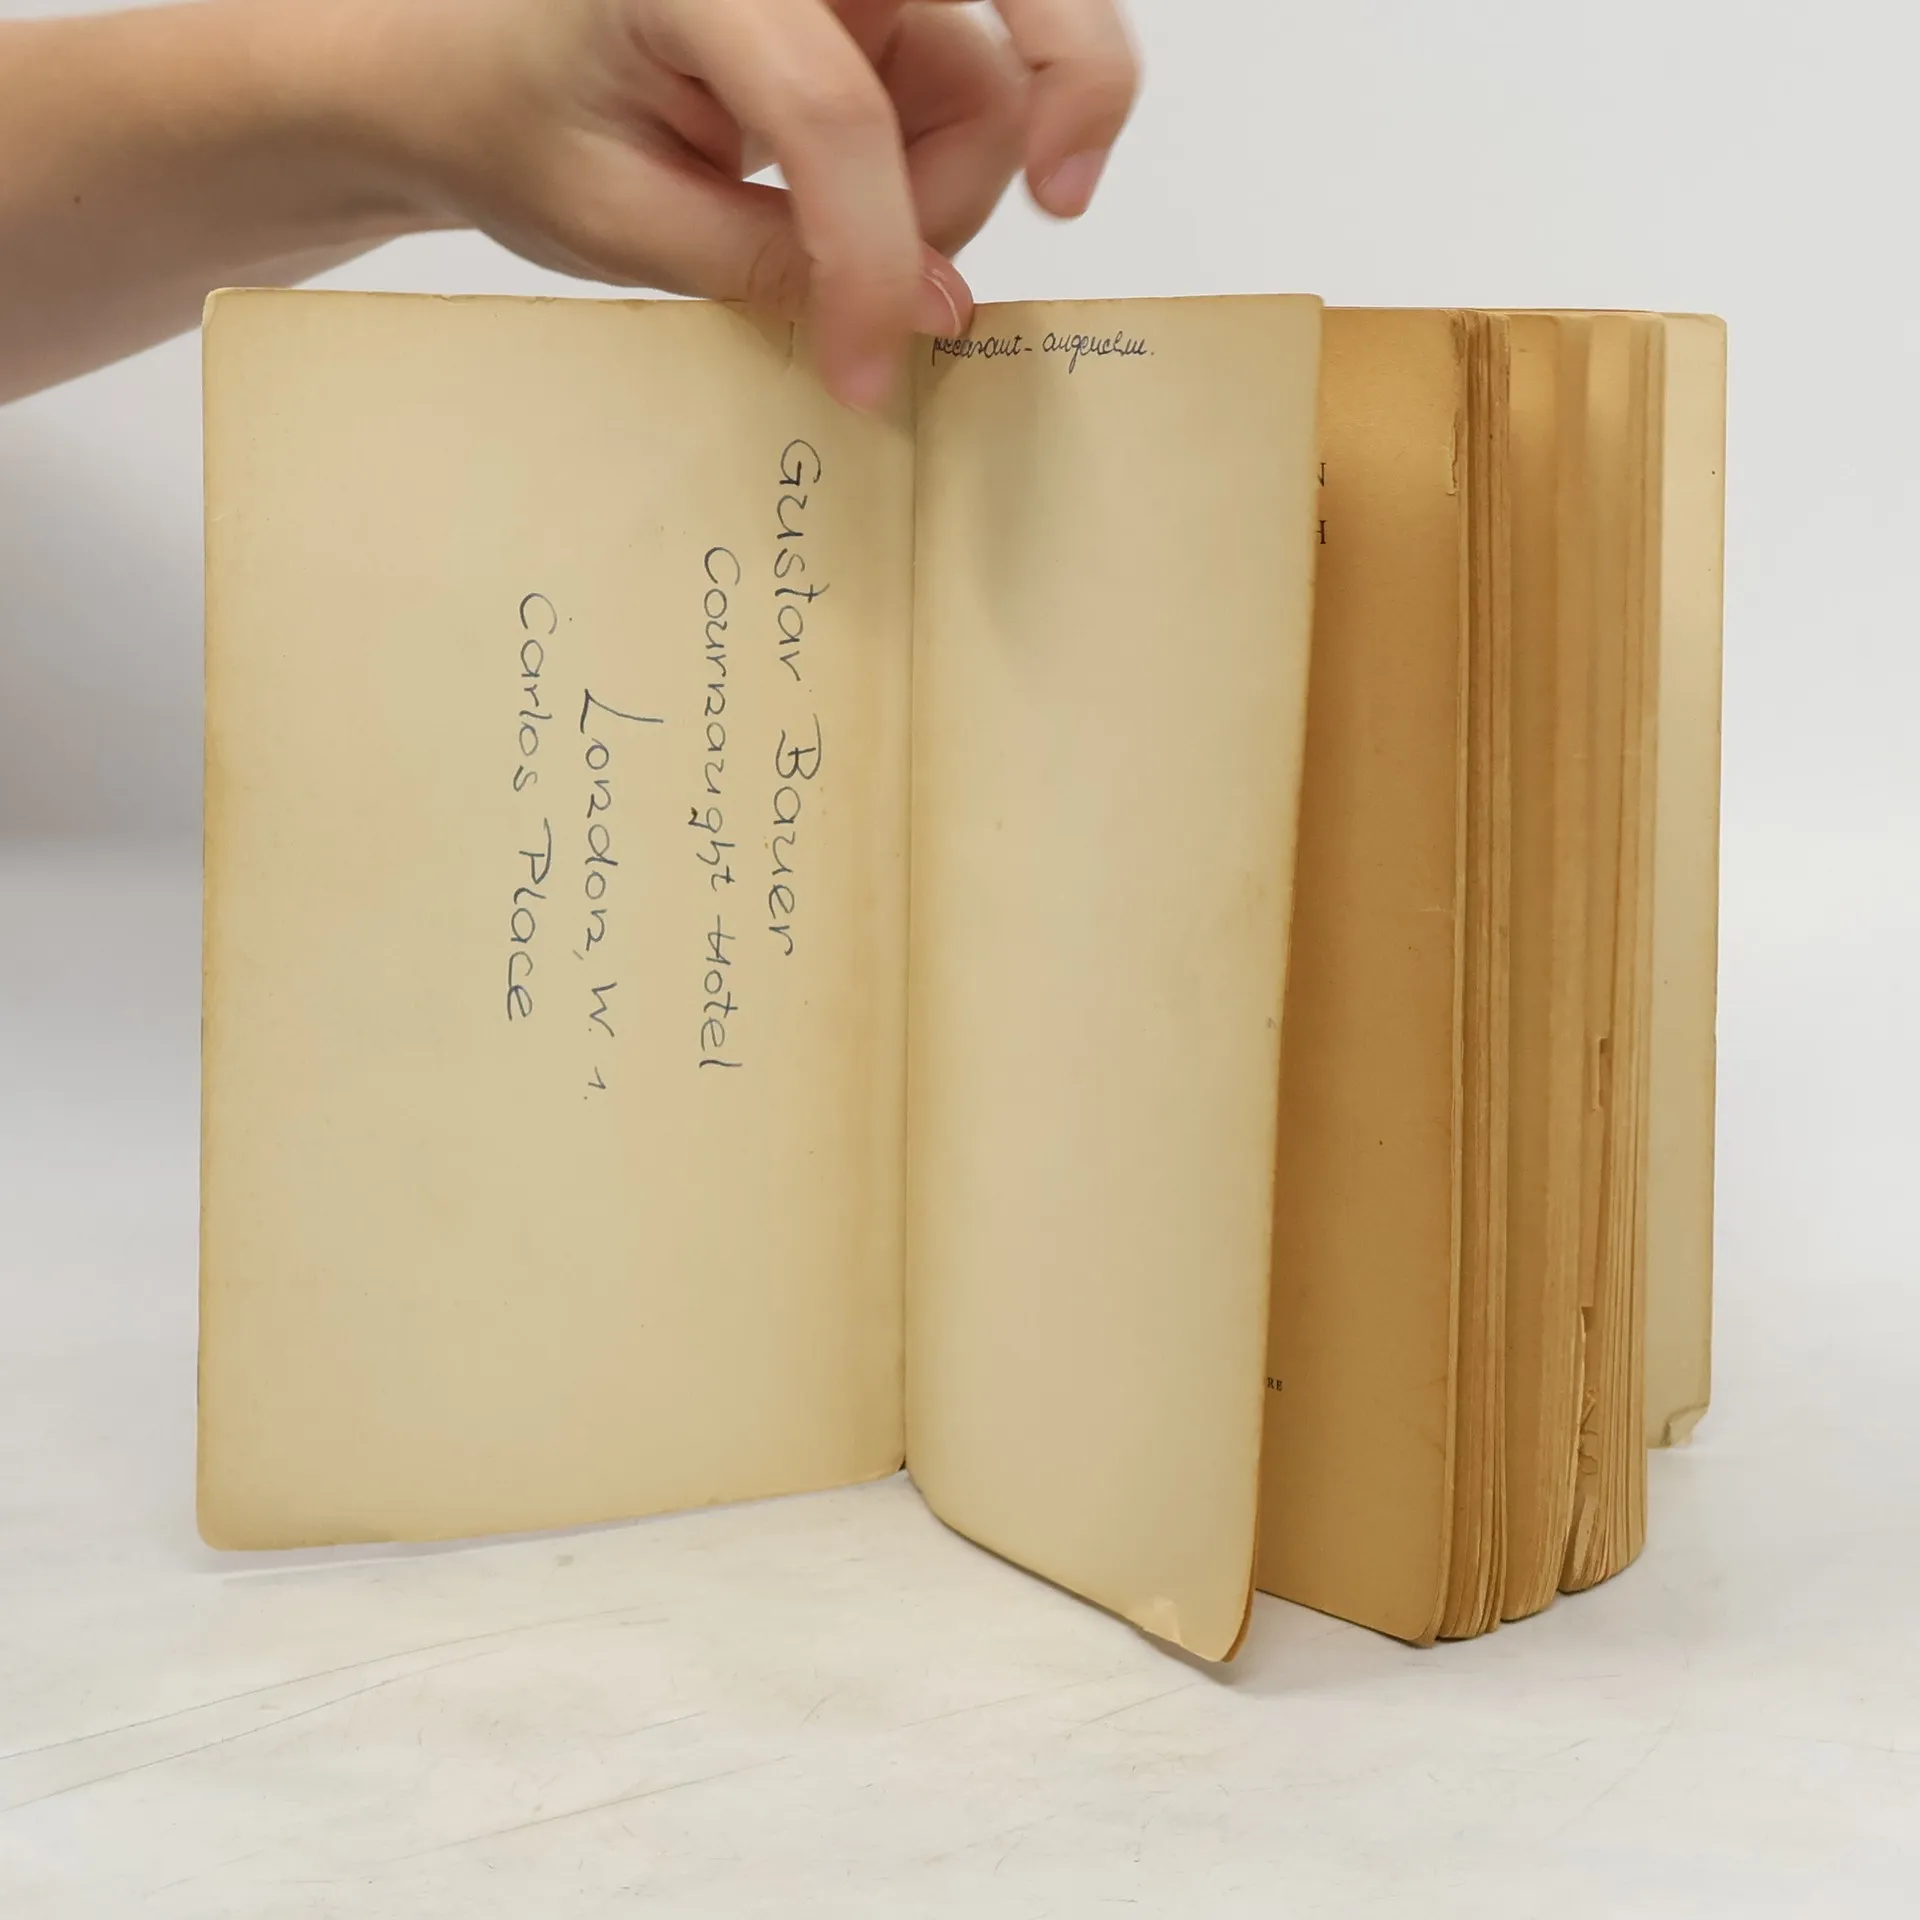 Gustav Bauer
Connaught Hotel
London, W. 1.
Carlos Place
pleasant - angenehm.
N
H
RE